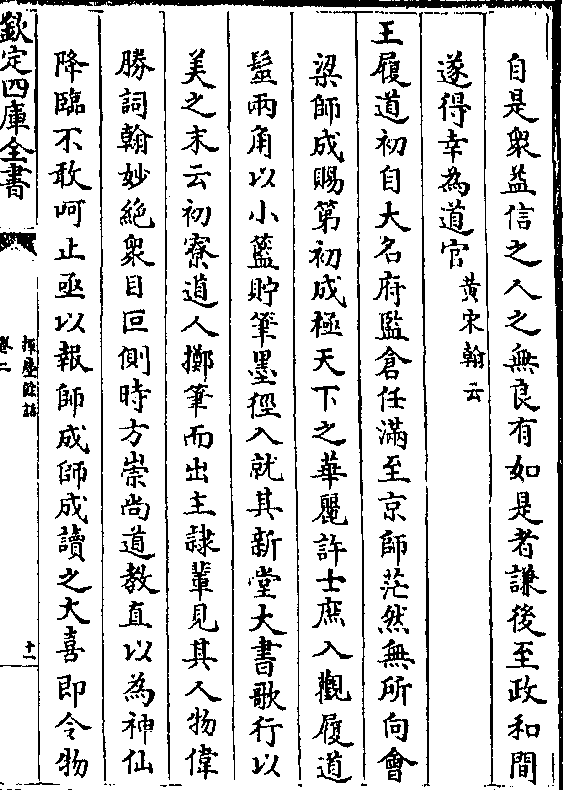 自是衆益信之人之無良有如是者謙後至政和間
遂得幸為道官黄宋翰云
王履道初自大名府監倉任滿至京師茫然無所向會
梁師成賜第初成極天下之華麗許士庶入觀履道
髽兩角以小籃貯筆墨徑入就其新堂大書歌行以
美之末云初寮道人擲筆而出主隸輩見其人物偉
勝詞翰妙絶衆目叵側時方崇尚道教直以為神仙
降臨不敢呵止亟以報師成師成讀之大喜即令物
欽定四庫全書
揮麈餘話
卷二
十一